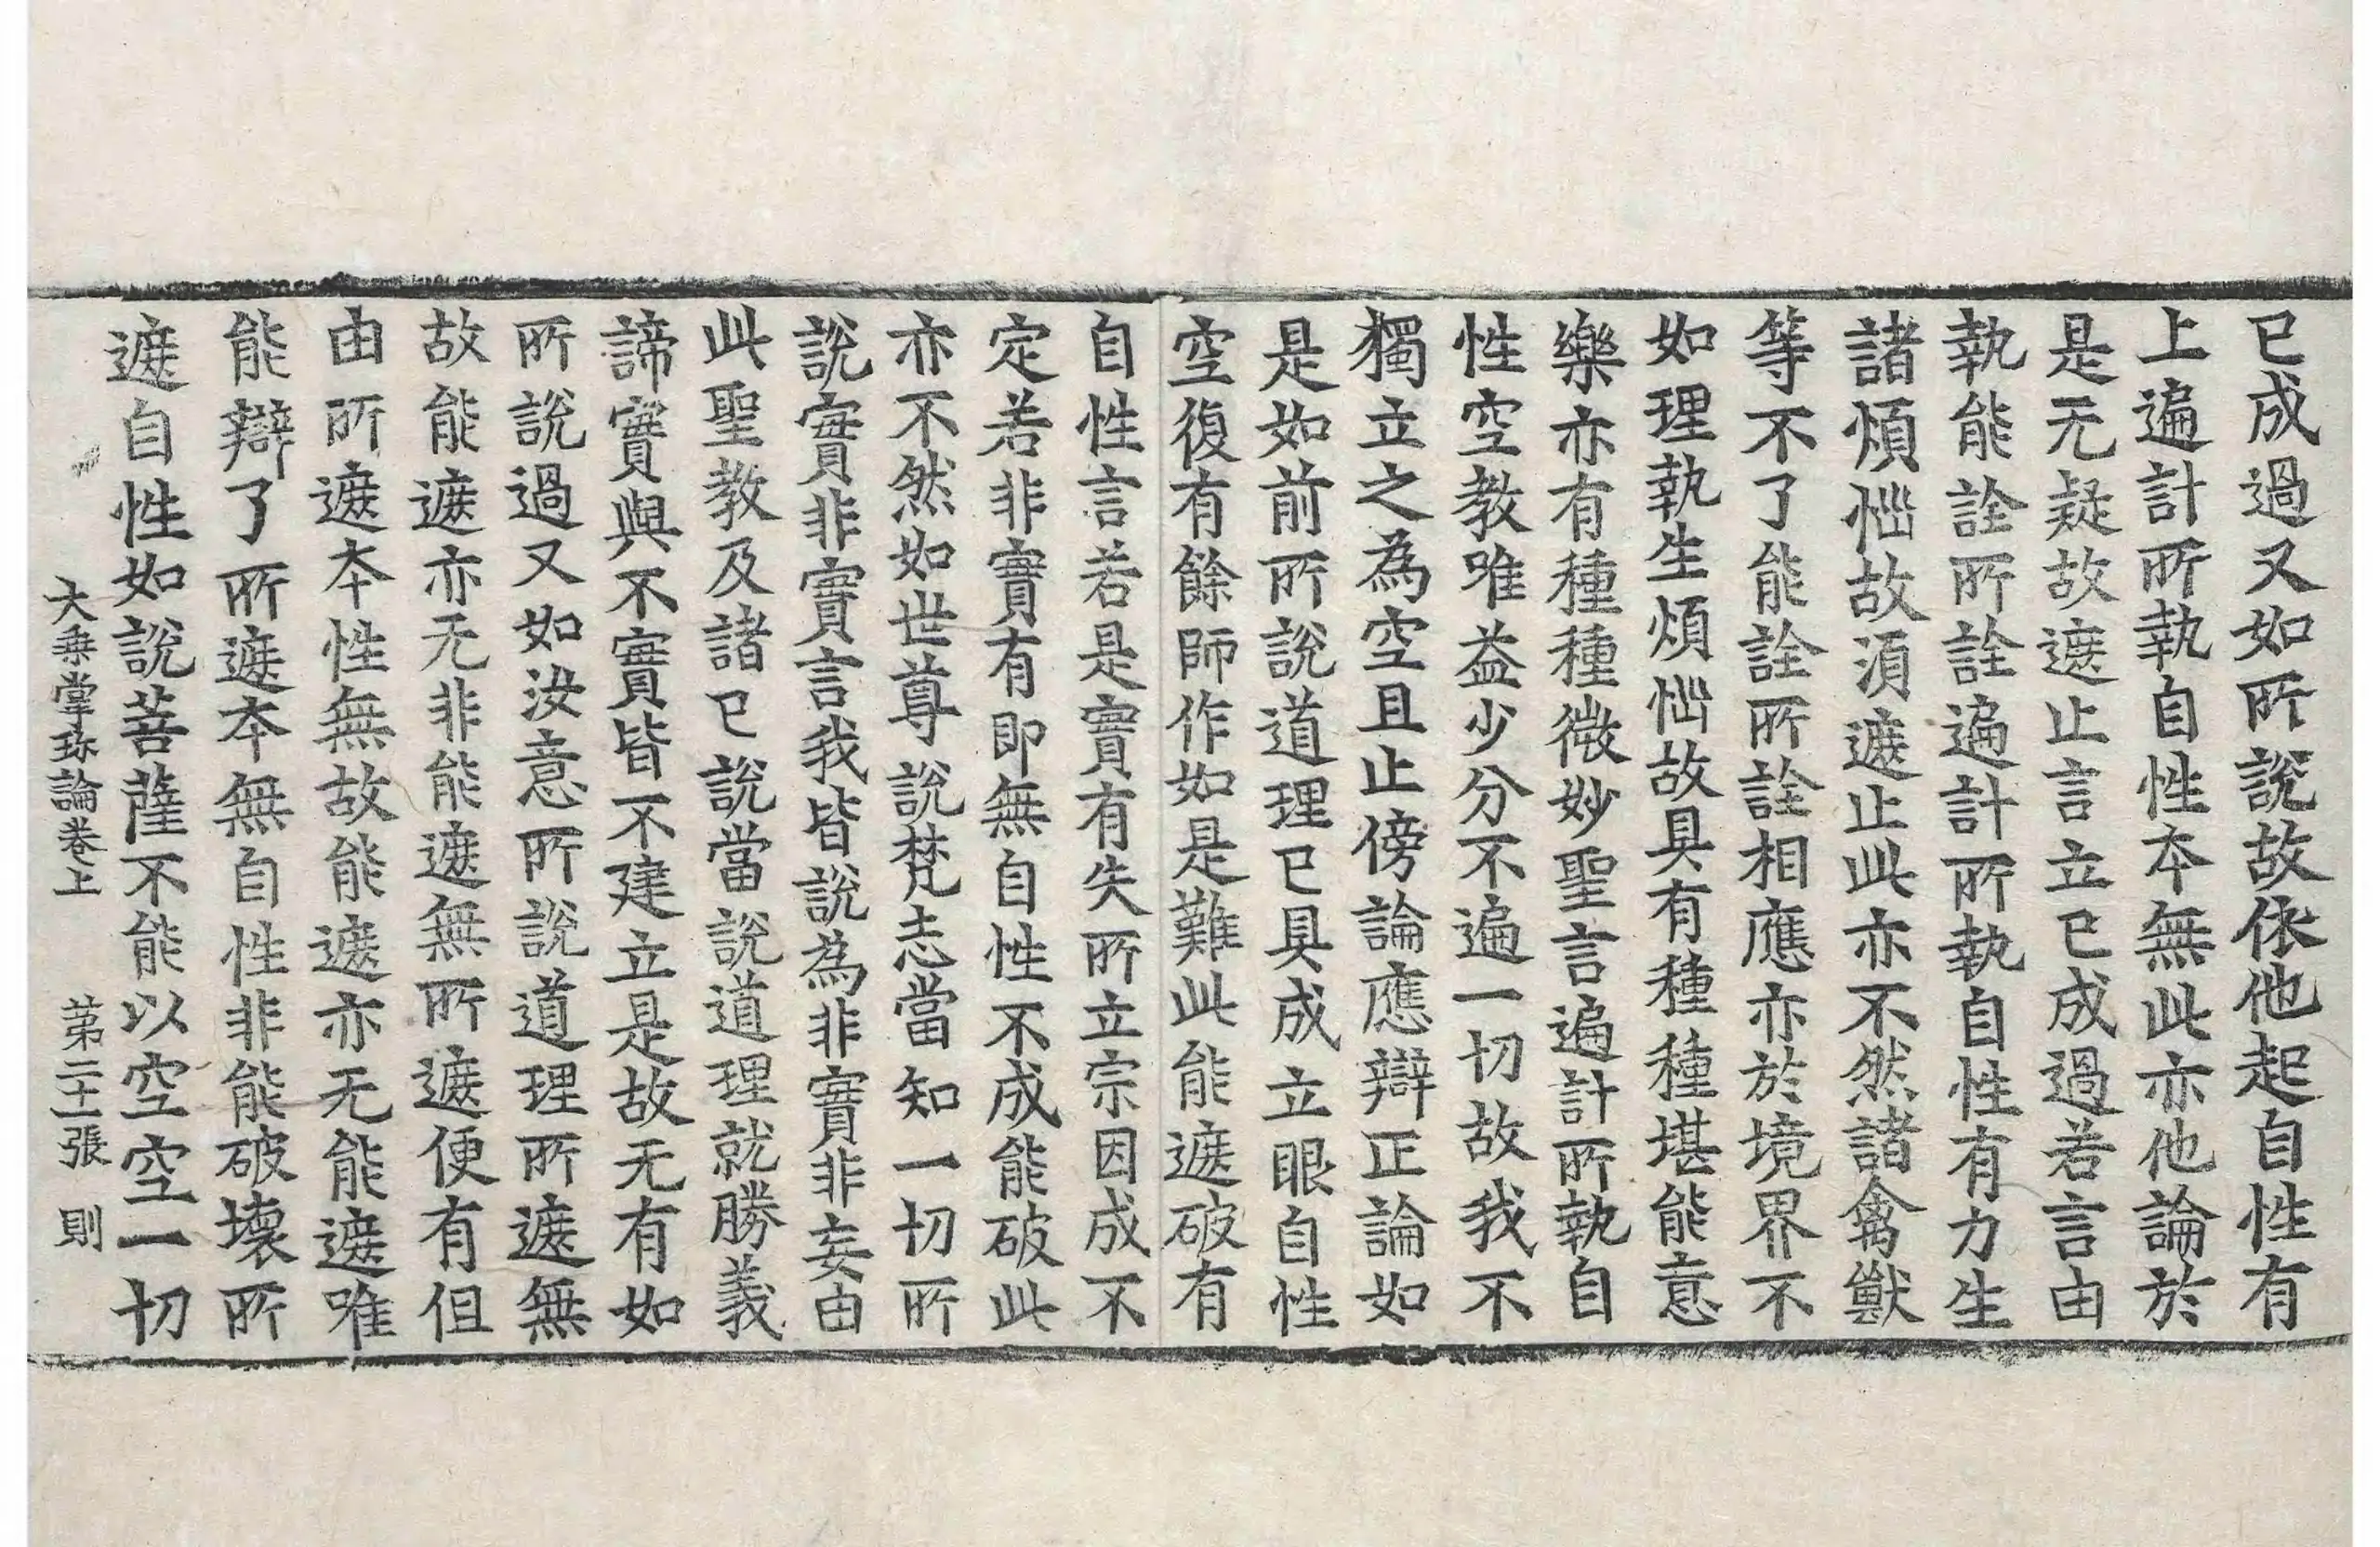 已成過又如所說故依他起自性有
上遍計所執自性本無此亦他論於
是无疑故遮止言立已成過若言由
執能詮所詮遍計所執自性有力生
諸煩惱故湏遮止此亦不然諸禽獸
等不了能詮所詮相應亦於境界不
如理執生煩惱故具有種種堪能意
樂亦有種種微妙聖言遍計所執自
性空教唯益少分不遍一切故我不
獨立之為空且止傍論應辯正論如
是如前所說道理已具成立眼自性
空復有餘師作如是難此能遮破有
自性言若是實有失所立宗因成不
定若非實有即無自性不成能破此
亦不然如世尊說梵志當知一切所
說實非實言我皆說為非實非妄由
此聖教及諸已說當說道理就勝義
諦實與不實皆不建立是故无有如
所說過又如汝意所說道理所遮無
故能遮亦无非能遮無所遮便有但
由所遮本性無故能遮亦无能遮唯
能辯了所遮本無自性非能破壞所
遮自性如說菩薩不能以空空一切
大乘掌珎論卷上 苐二十一張 則